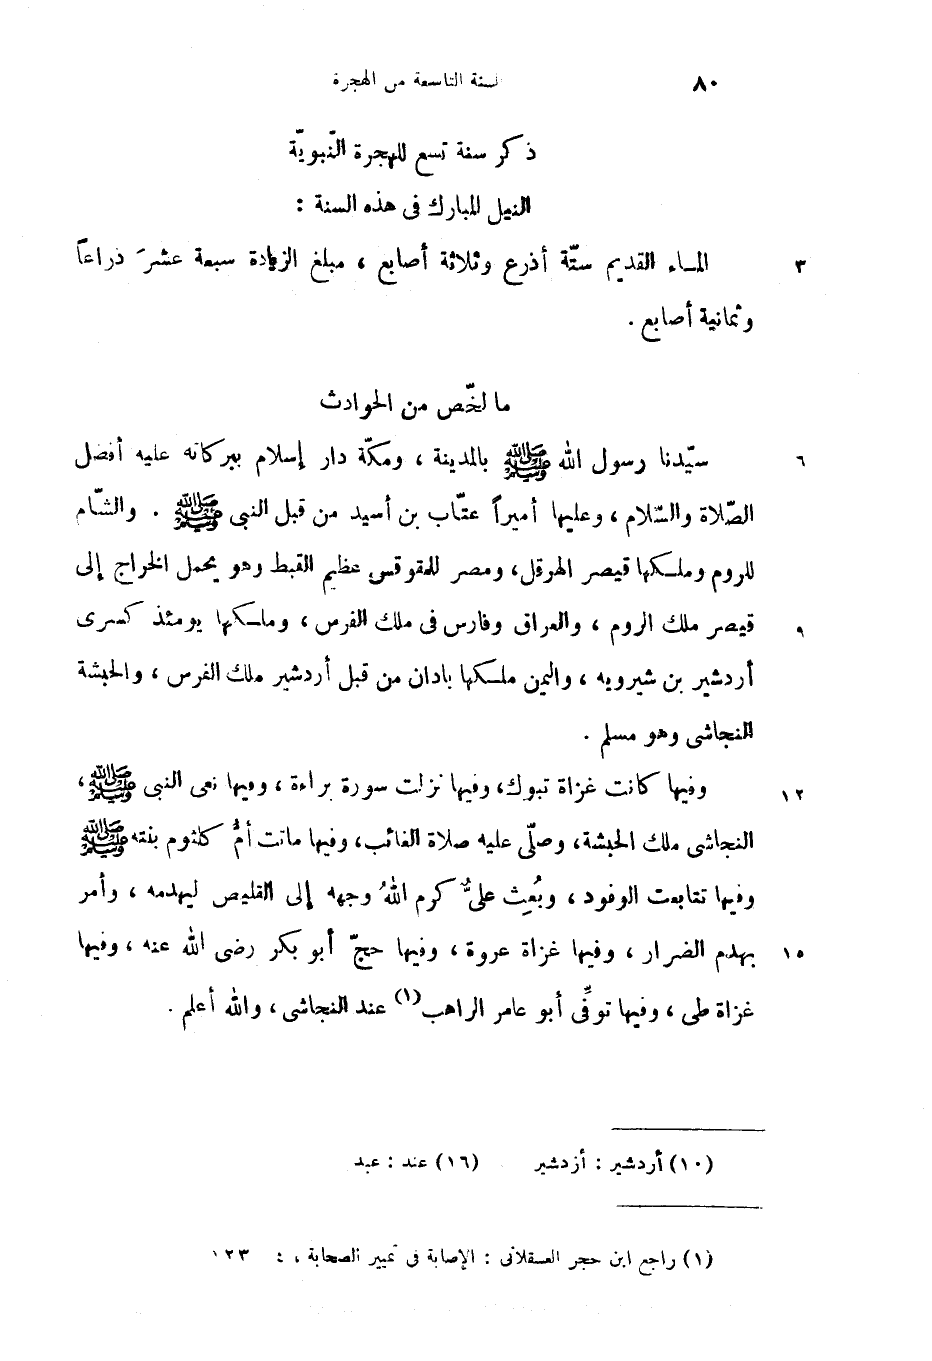 ٨٠ السنة التاسعة من الهجرة
ذكر سنة تسع للهجرة النّبويّة
النيل المبارك فى هذه السنة :
٣ المـاء القديم ستّة أذرع وثلاثة أصابع ، مبلغ الزيادة سبعة عشرَ ذراعاً
وثمانية أصابع .
ما لخّص من الحوادث
٦ سيّدنا رسول الله ﷺ بالمدينة ، ومكّة دار إسلام ببركاته عليه أفضل
الصّلاة والسّلام ، وعليها أميراً عتّاب بن أسيد من قبل النبى ﷺ . والشّام
للروم وملـكها قيصر الهرقل، ومصر للمقوقس عظيم القبط وهو يحمل الخراج إلى
٩ قيصر ملك الروم ، والعراق وفارس فى ملك الفرس ، وملـكها يومئذ كسرى
أردشير بن شيرويه ، واليمن ملـكها بادان من قبل أردشير ملك الفرس ، والحبشة
النجاشى وهو مسلم .
١٢ وفيها كانت غزاة تبوك، وفيها نزلت سورة براءة ، وفيها نعى النبى ﷺ ،
النجاشى ملك الحبشة، وصلّى عليه صلاة الغائب، وفيها ماتت أمُّ كلثوم بنته ﷺ
وفيها تتابعت الوفود ، وبُعِث علىٌّ كرم اللهُ وجهه إلى القليص ليهدمه ، وأمر
١٥ بهدم الضرار ، وفيها غزاة عروة ، وفيها حجّ أبو بكر رضى الله عنه ، وفيها
غزاة طى ، وفيها توفِّى أبو عامر الراهب(١) عند النجاشى، والله أعلم .
(١٠) أردشير : أزدشير (١٦) عند : عبد
(١) راجع ابن حجر العسقلانى : الإصابة فى تمييز الصحابة ،